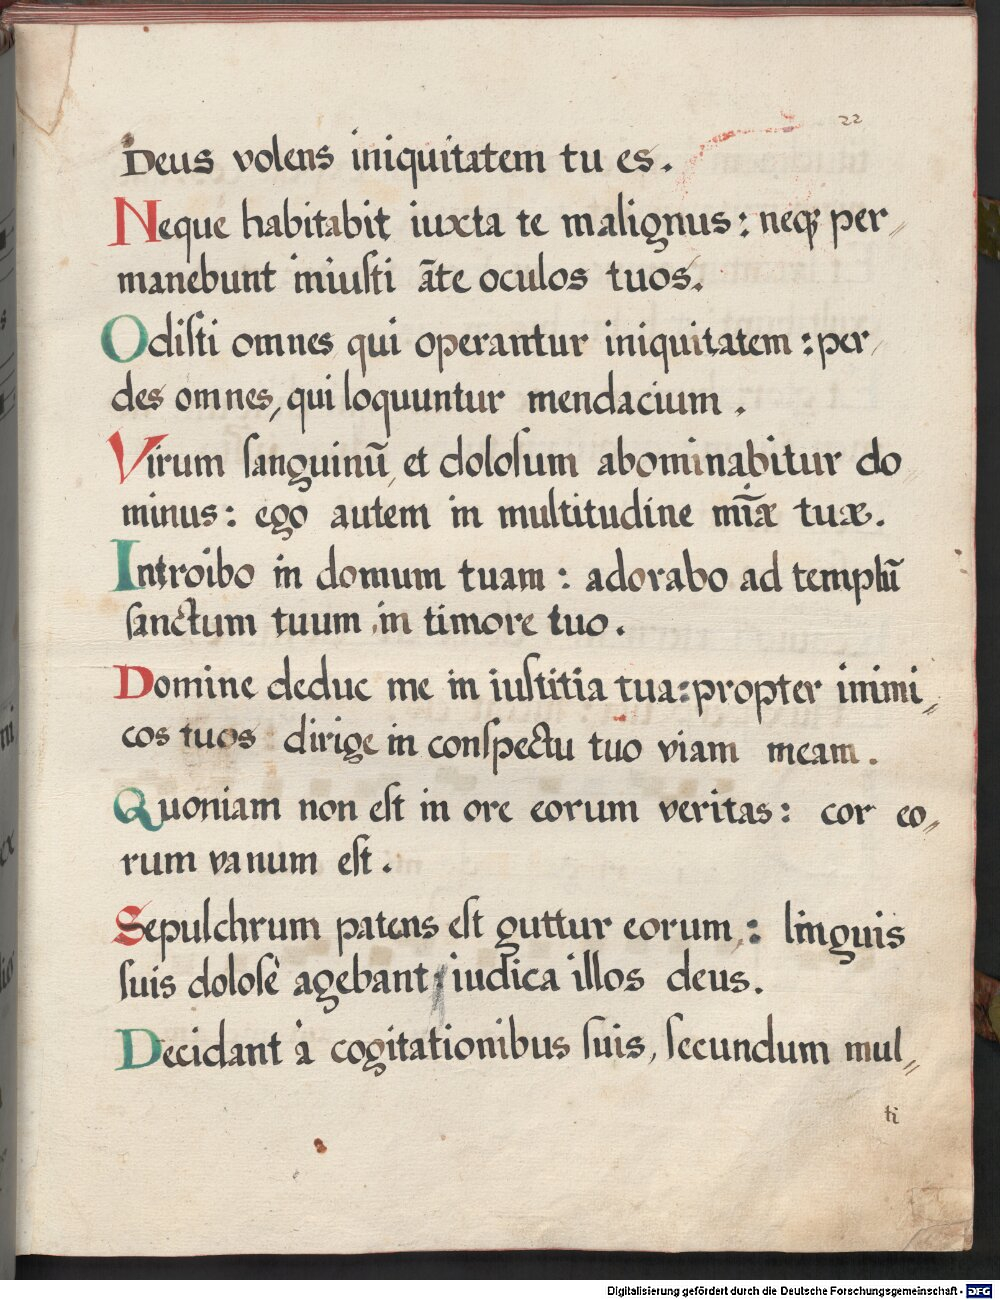 22
Deus volens iniquitatem tu es.
Neque habitabit iuxta te malignus: neqꝫ per„
manebunt iniuſti āte oculos tuos.
Odiſti omnes qui operantur iniquitatem: per„
des omnes, qui loquuntur mendacium.
Virum ſanguinū et doloſum abominabitur do„
minus: ego autem in multitudine m̄iæ tuæ.
Introibo in domum tuam: adorabo ad templū
ſanctum tuum in timore tuo.
Domine deduc me in iuſtitia tua: propter inimi„
cos tuos dirige in conſpectu tuo viam meam.
Quoniam non eſt in ore eorum veritas: cor eo„
rum vanum eſt.
Sepulchrum patens eſt guttur eorum: linguis
ſuis doloſè agebant, iudica illos deus.
Decidant à cogitationibus ſuis, ſecundum mul„
ti
Digitalisierung gefördert durch die Deutsche Forschungsgemeinschaft - DFG